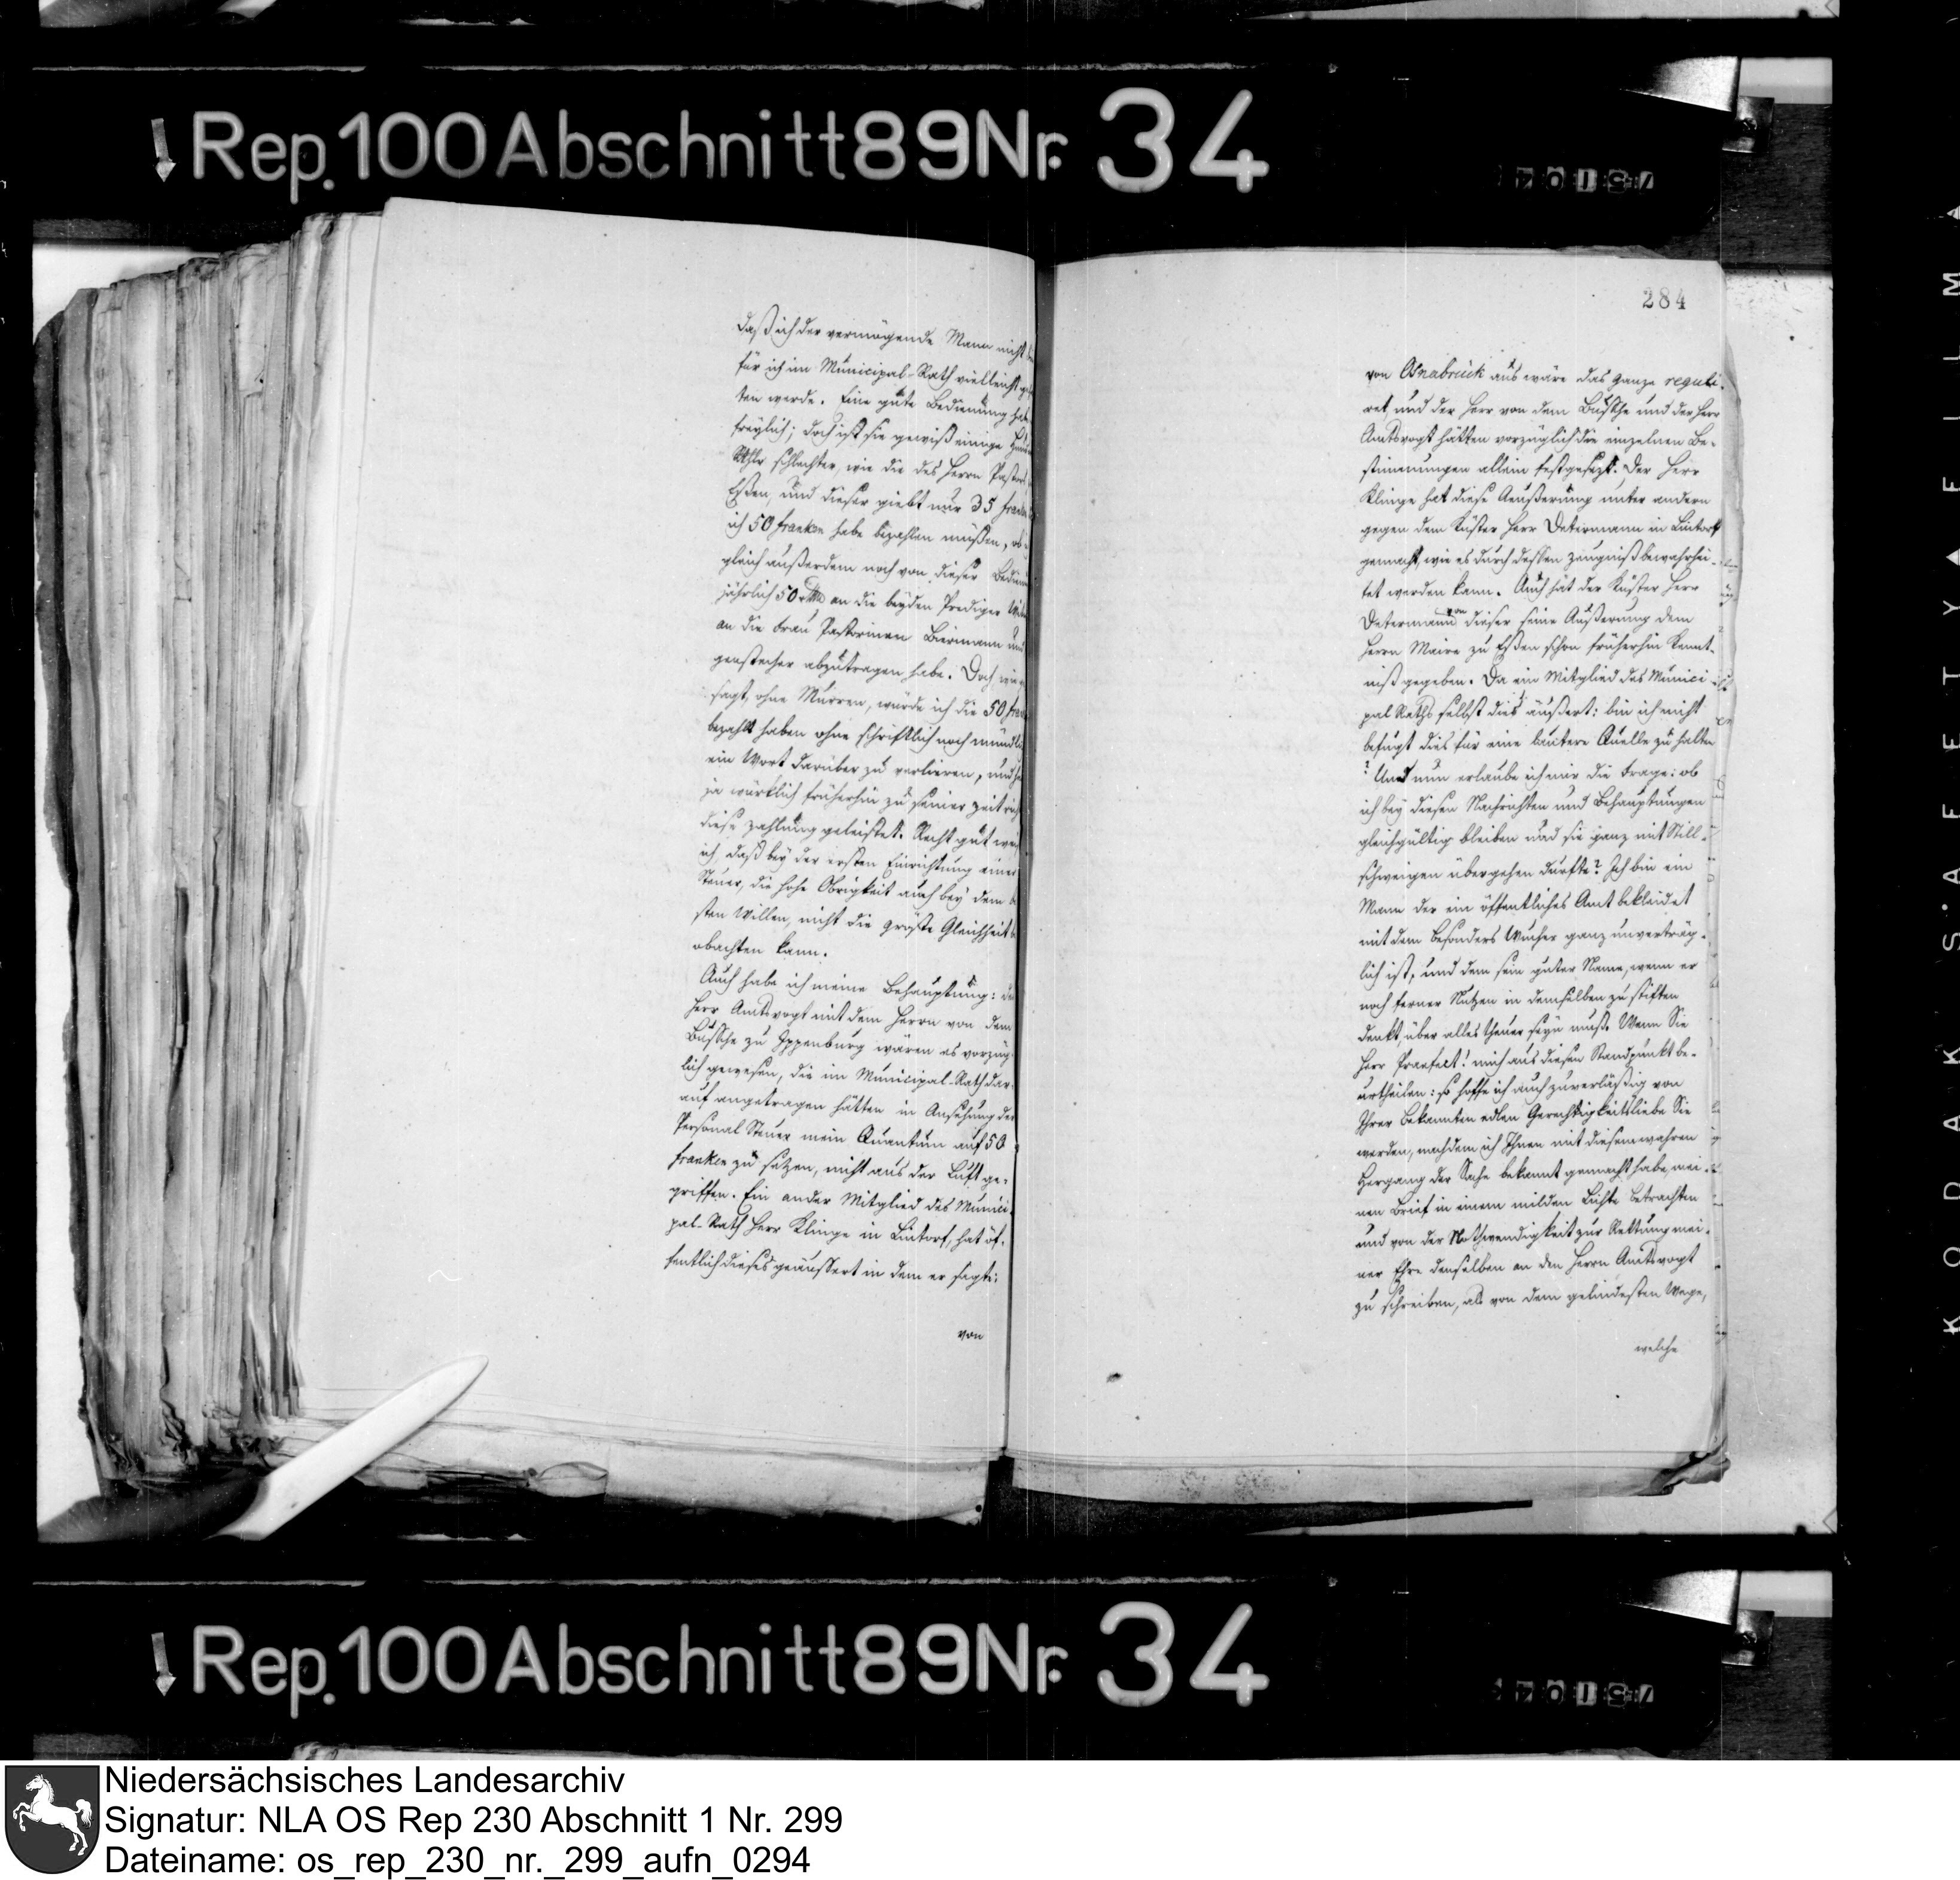 Rep. 100 Abschnitt 89 Nr. 34
daß ich der vermögende Mann nicht
für ich im Municipal-Rath vielleicht
ten werde. Eine gute Bedienung
freylich; doch ist sie gewiß einige
Rthlr schlechter, wie die des Herrn Pastor
Eßen, und dieser giebt nur 35 franken
ich 50 franken habe bezahlen müßen, ob
gleich außerdem noch von dieser
jährlich 50 an die beyden Prediger
an die Frau Pastorinen Biermann
abzutragen habe. Doch wie
sagt, ohne Murren, würde ich die 50
bezahlt haben ohne schriftlich noch
ein Wort darüber zu verlieren, und
ja würklich früherhin zu seiner Zeit
diese Zahlung geleistet. Recht gut
ich, daß bey der ersten Einrichtung einer
Steuer, die hohe Obrigkeit auch bey dem
sten Willen, nicht die größte Gleichheit
obachten kann.
Auch habe ich meine Behauptung:
Herr Amtsvogt mit dem Herrn von dem
Bussche zu Ippenburg wären es vorzüg
lich gewesen, die im Municipal-Rath dar-
auf angetragen hätten in Ansehung der
Personal Steuer mein Quantum auf 50
franken zu setzen, nicht aus der Luft ge-
griffen. Ein ander Mitglied des Munici
pal-Rath Herr Klinge in Lintorf, hat öf-
fentlich dieses geäussert in dem er sagte:
von
284
von Osnabrück aus wäre das ganze reguli-
ret, und der Herr von dem Bussche und der Herr
Amtsvogt hätten vorzüglich die einzelnen Be-
stimmungen allein festgesezt. Der Herr
Klinge hat diese Aeußerung unter andern
gegen dem Küster Herr Determann in Lintorf
gemacht, wie es durch dessen Zeugniß bewahrhei-
tet werden kann. Auch hat der Küster Herr
Determann von dieser seine Äußerung dem
Herrn Maire zu Eßen schon früherhin Kennt-
niß gegeben. Da ein Mitglied des Munici
pal Raths selbst dies äußert: bin ich nicht
befugt dies für eine lautere Quelle zu halten
? Und nun erlaube ich mir die Frage: ob
ich bey diesen Nachrichten und Behauptungen
gleichgültig bleiben und sie ganz mit Still-
schweigen übergehen durfte? Ich bin ein
Mann der ein öffentliches Amt bekleidet
mit dem besonders Wucher ganz unverträg-
lich ist, und dem sein guter Name, wenn er
noch ferner Nutzen in demselben zu stiften
denkt, über alles theuer seyn muß. Wenn Sie
Herr Praefect! mich aus diesen Standpunkt be-
urtheilen: so hoffe ich auch zuverläßig von
Ihrer bekannten edlen Gerechtigkeitsliebe Sie
werden, nachdem ich Ihnen mit diesem wahren
Hergang der Sache bekannt gemacht habe, mei-
nen Brief in einem milden Lichte betrachten
und von der Nothwendigkeit zur Rettung mei-
ner Ehre denselben an den Herrn Amtsvogt
zu schreiben, als von dem gelindesten Wege,
welche
KODAK SAFETY FILM
Rep. 100 Abschnitt 89 Nr. 34
Niedersächsisches Landesarchiv
Signatur: NLA OS Rep 230 Abschnitt 1 Nr. 299
Dateiname: os_rep_230_nr._299_aufn_0294